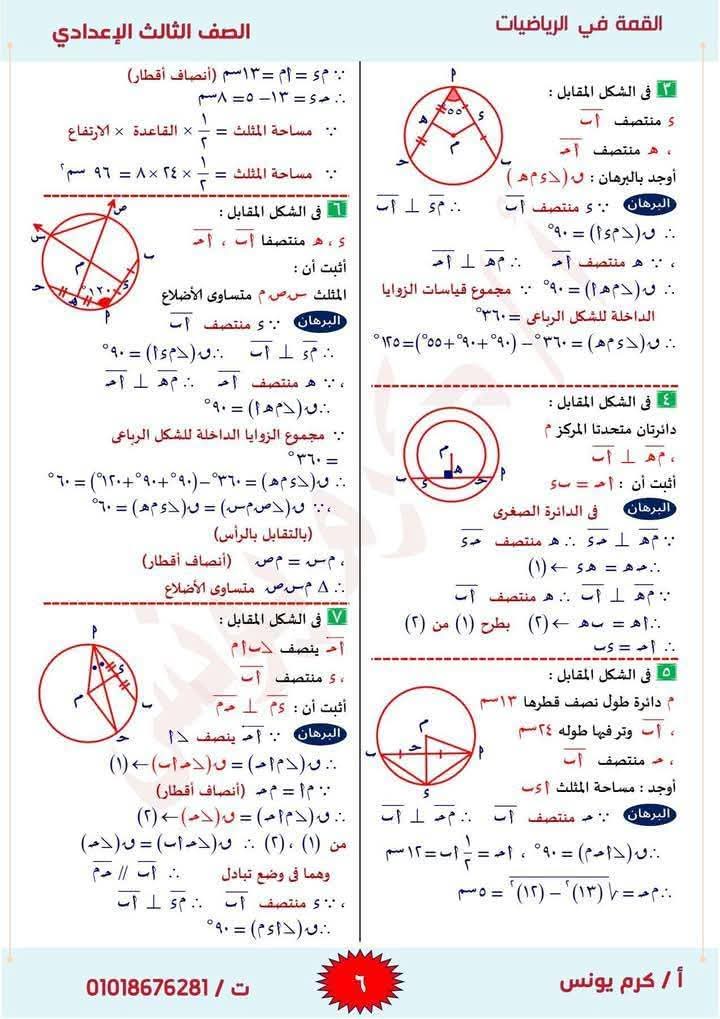 القمة في الرياضيات
الصف الثالث الإعدادي
٣ فى الشكل المقابل :
ء منتصف أب
، ه منتصف أحـ
أوجد بالبرهان : ق(∠ء م ه)
البرهان ∵ ء منتصف أب ∴ مء ⊥ أب
∴ ق(∠م ء أ) = ٩٠°
، ∵ ه منتصف أحـ ∴ مه ⊥ أحـ
∴ ق(∠م ه أ) = ٩٠° ∵ مجموع قياسات الزوايا
الداخلة للشكل الرباعى = ٣٦٠°
∴ ق(∠ء م ه) = ٣٦٠° – (٩٠° + ٩٠° + ٥٥°) = ١٢٥°
أ
٥٥°
ه
ء
م
حـ
ب
٤ فى الشكل المقابل :
دائرتان متحدتا المركز م
، مه ⊥ أب
أثبت أن : أحـ = بء
البرهان فى الدائرة الصغرى
∵ مه ⊥ حـء ∴ ه منتصف حـء
∴ حـه = هء ← (١)
∵ مه ⊥ أب ∴ ه منتصف أب
∴ أه = به ← (٢) بطرح (١) من (٢)
∴ أحـ = بء
م
ه
أ
حـ
ء
ب
٥ فى الشكل المقابل :
م دائرة طول نصف قطرها ١٣سم
، أب وتر فيها طوله ٢٤سم
، حـ منتصف أب
أوجد : مساحة المثلث أءب
البرهان ∵ حـ منتصف أب ∴ محـ ⊥ أب
∴ ق(∠أحـم) = ٩٠° ، أحـ = ١/٢ أب = ١٢سم
∴ محـ = √((١٣)² – (١٢)²) = ٥سم
م
أ
حـ
ب
ء
∵ مء = أم = ١٣سم (أنصاف أقطار)
∴ حـء = ١٣ – ٥ = ٨سم
∵ مساحة المثلث = ١/٢ × القاعدة × الارتفاع
∵ مساحة المثلث = ١/٢ × ٢٤ × ٨ = ٩٦ سم²
٦ فى الشكل المقابل :
ء ، ه منتصفا أب ، أحـ
أثبت أن :
المثلث س ص م متساوى الأضلاع
البرهان ∵ ء منتصف أب
∴ مء ⊥ أب ∴ ق(∠م ء أ) = ٩٠°
، ∵ ه منتصف أحـ ∴ مه ⊥ أحـ
∴ ق(∠م ه أ) = ٩٠°
∵ مجموع الزوايا الداخلة للشكل الرباعى
= ٣٦٠°
∴ ق(∠ء م ه) = ٣٦٠° – (٩٠° + ٩٠° + ١٢٠°) = ٦٠°
، ∵ ق(∠ص م س) = ق(∠ء م ه) = ٦٠°
(بالتقابل بالرأس)
، م س = م ص (أنصاف أقطار)
∴ Δ م س ص متساوى الأضلاع
ص
س
م
ب
ء
١٢٠°
حـ
ه
أ
٧ فى الشكل المقابل :
أحـ ينصف ∠ب أ م
، ء منتصف أب
أثبت أن : ءم ⊥ حـم
البرهان ∵ أحـ ينصف ∠أ
∴ ق(∠م أ حـ) = ق(∠حـ أ ب) ← (١)
∵ م أ = م حـ (أنصاف أقطار)
∴ ق(∠م أ حـ) = ق(∠حـ) ← (٢)
من (١) ، (٢) ∴ ق(∠حـ أ ب) = ق(∠حـ)
وهما فى وضع تبادل ∴ أب // حـم
، ∵ ء منتصف أب ∴ مء ⊥ أب
∴ ق(∠أ ء م) = ٩٠°
أ
ء
م
ب
حـ
أ / كرم يونس
٦
ت / 01018676281